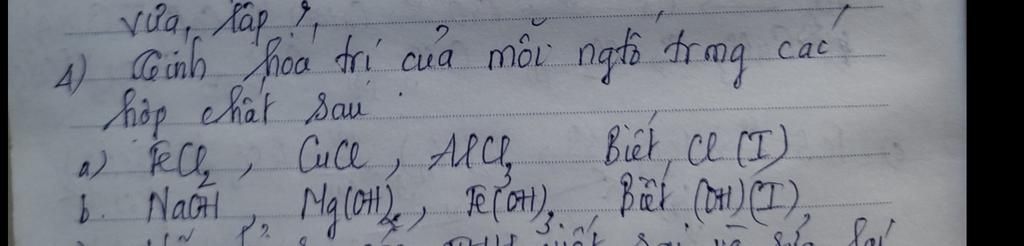 vừa, lập
4) Tính hóa trị của mỗi ngtố trong các
hợp chất sau
a) FeCl₂, CuCl, AlCl₃ Biết, Cl (I)
b. NaOH, Mg(OH)₂, Fe(OH)₃ Biết (OH)(I)